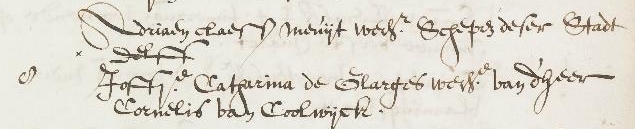 Adriaen claess Menijt weer Schepen deser Stadt
Delff
Joffre Catharina de Glarges wede van d'heer
Cornelis van Coolwijck.